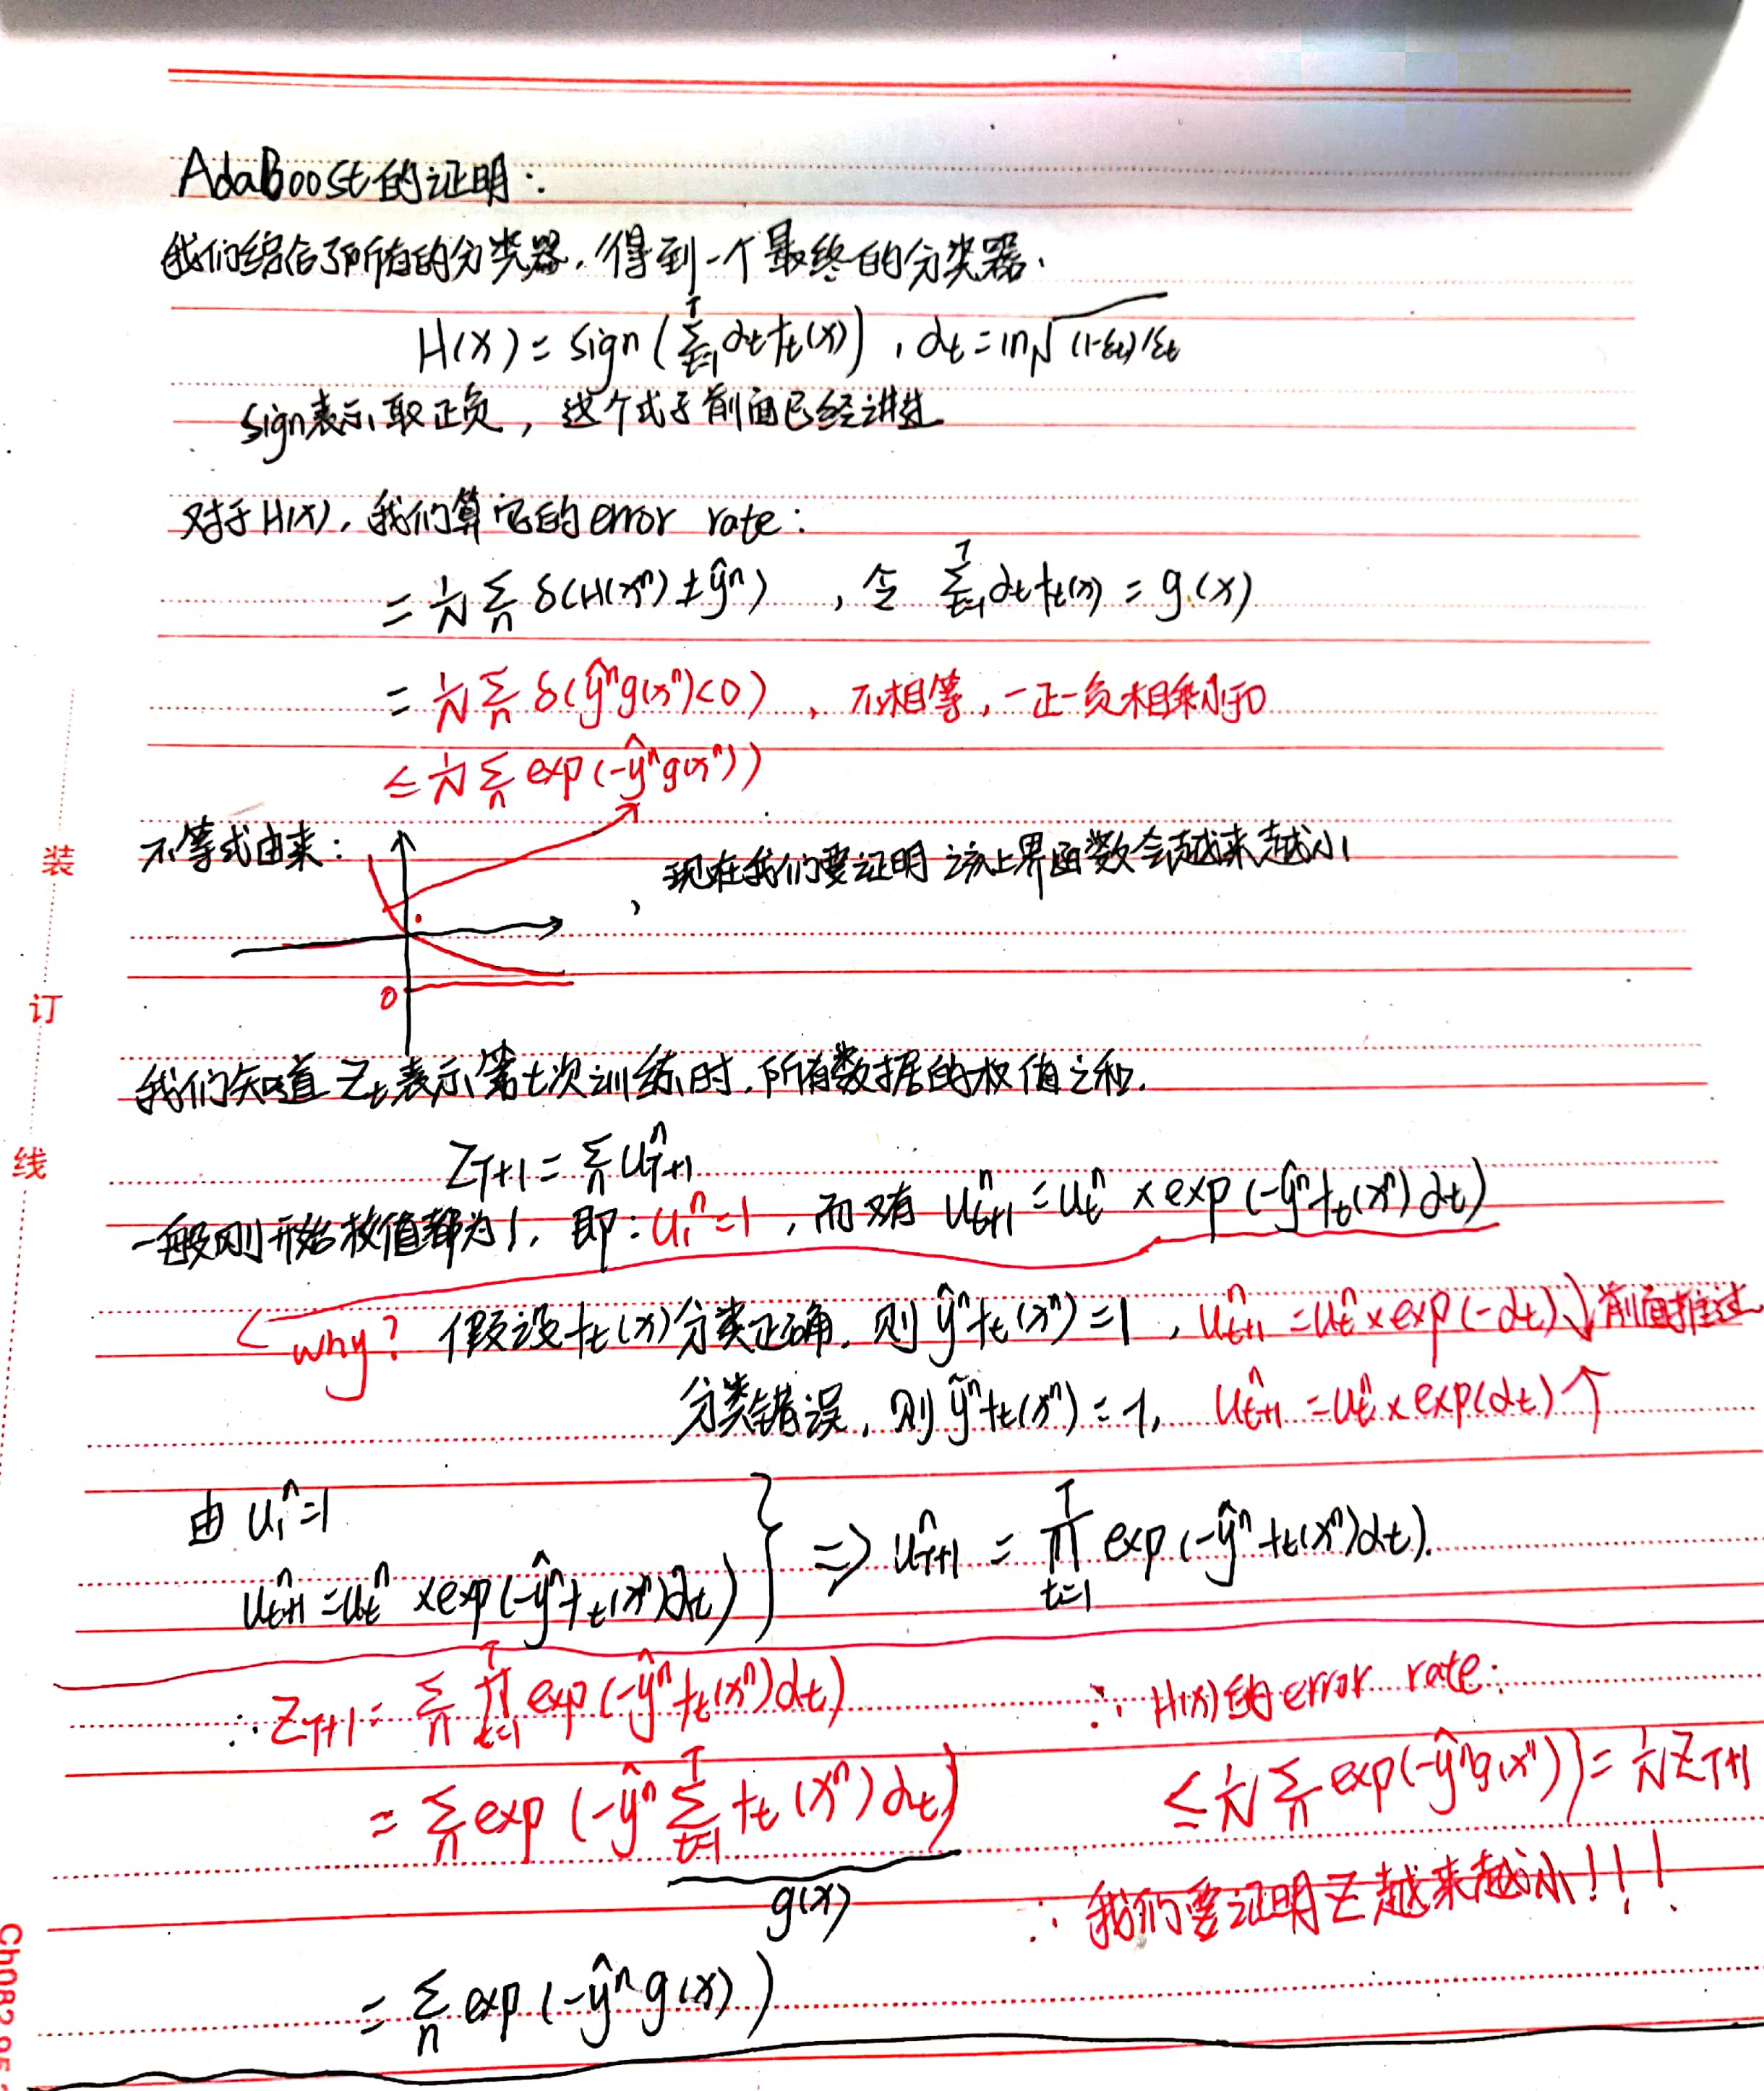 AdaBoost的证明：
我们结合了所有的分类器，得到一个最终的分类器．
H(x) = sign(∑_{t=1}^{T} α_t f_t(x))，α_t = ln√(1-ε_t)/ε_t
sign表示取正负，这个式子前面已经讲过
对于H(x)，我们算它的error rate：
= 1/N ∑_n δ(H(x^n) ≠ ŷ^n)，令 ∑_{t=1}^{T} α_t f_t(x) = g(x)
= 1/N ∑_n δ(ŷ^n g(x^n)<0)，不相等，一正一负相乘小于0
≤ 1/N ∑_n exp(-ŷ^n g(x^n))
不等式由来：
，现在我们要证明该上界函数会越来越小
0
我们知道Z_t表示第t次训练时，所有数据的权值之和．
Z_{T+1} = ∑_n u_{T+1}^n
一般刚开始权值都为1，即：u_1^n=1，而又有 u_{t+1}^n = u_t^n × exp(-ŷ^n f_t(x^n) α_t)
why? 假设f_t(x)分类正确，则ŷ^n f_t(x^n)=1，u_{t+1}^n = u_t^n × exp(-α_t)↓前面推过
分类错误，则ŷ^n f_t(x^n) = -1，u_{t+1}^n = u_t^n × exp(α_t)↑
由 u_1^n=1
u_{t+1}^n = u_t^n × exp(-ŷ^n f_t(x^n) α_t) } ⇒ u_{T+1}^n = ∏_{t=1}^{T} exp(-ŷ^n f_t(x^n) α_t).
∴ Z_{T+1} = ∑_n ∏_{t=1}^{T} exp(-ŷ^n f_t(x^n) α_t)
= ∑_n exp(-ŷ^n ∑_{t=1}^{T} f_t(x^n) α_t)
g(x)
= ∑_n exp(-ŷ^n g(x))
∴ H(x)的error rate：
≤ 1/N ∑_n exp(-ŷ^n g(x^n)) = 1/N Z_{T+1}
∴ 我们要证明Z越来越小!!!
装
订
线